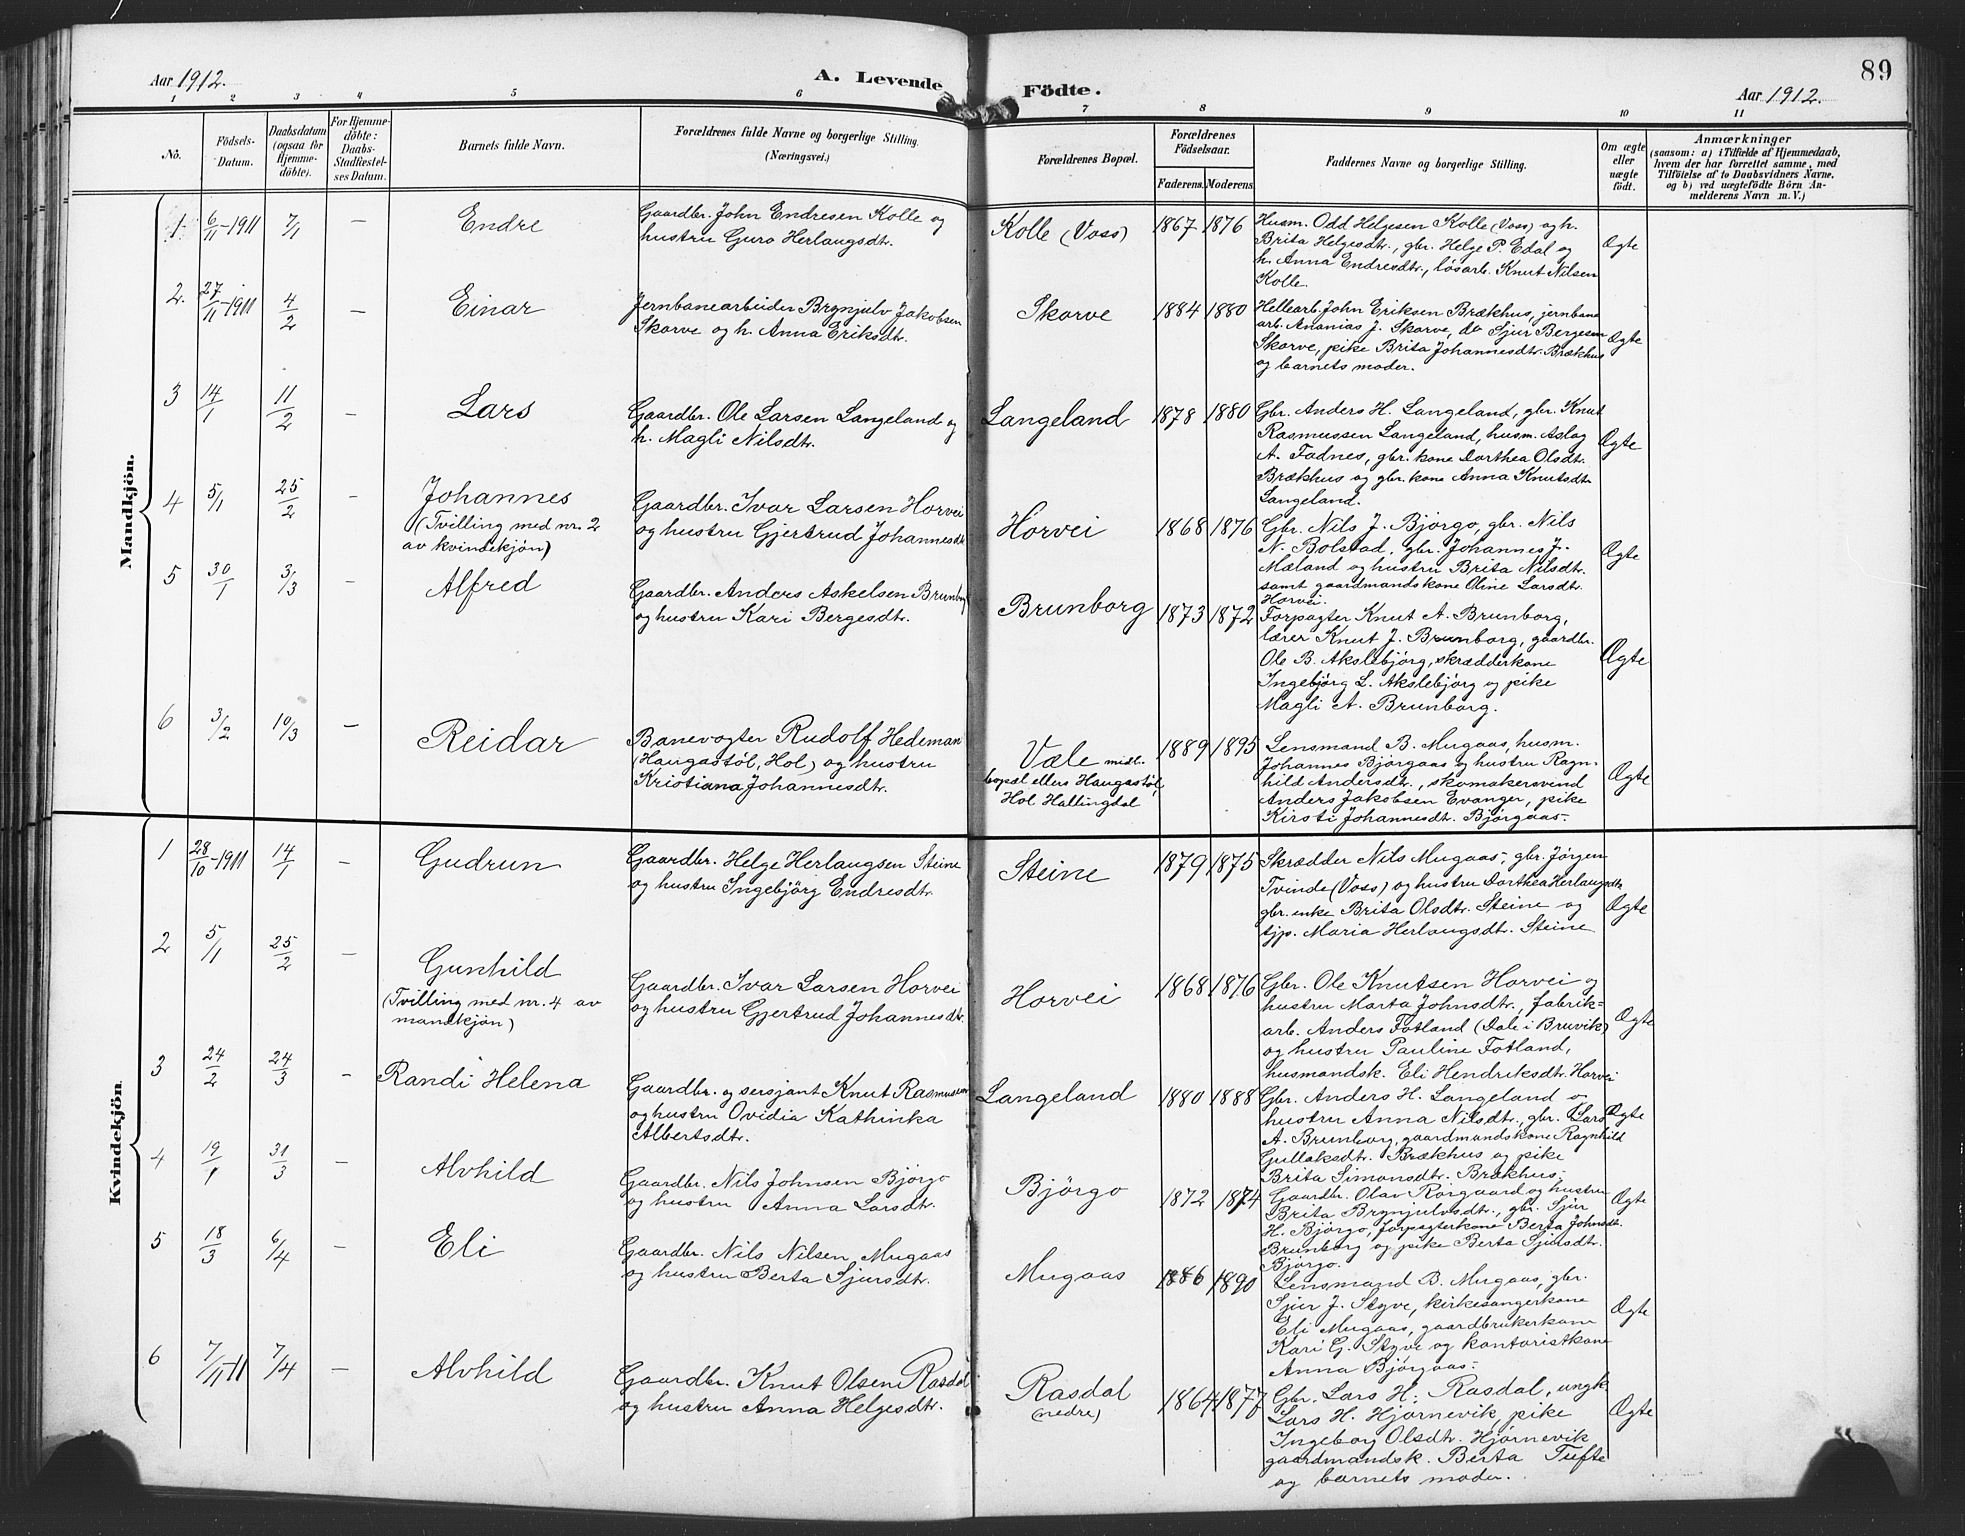 89
Aar 1912.
A. Levende Födte.
Aar 1912.
1 2 3 4 5 6 7 8 9 10 11
No.
Födsels-
Datum.
Daabsdatum
(ogsaa for
Hjemme-
döbte).
For Hjemme-
döbte:
Daabs-
Stadfæstel-
ses Datum.
Barnets fulde Navn.
Forældrenes fulde Navne og borgerlige Stilling.
(Næringsvei.)
Forældrenes Bopæl.
Forældrenes
Födselsaar.
Faderens. Moderens.
Faddernes Navne og borgerlige Stilling.
Om ægte
eller
uægte
födt.
Anmærkninger
(saasom: a) i Tilfælde af Hjemmedaab,
hvem der har forrettet samme, med
Tilföielse af to Daabsvidners Navne.
og b) ved uægtefödte Börn An-
melderens Navn m. V.)
Mandkjön.
1 6/11-1911 7/1 — Endre
Gaardbr. John Endresen Kolle og
hustru Guro Herlaugsdtr.
Kolle (Voss) 1867 1876
Husm. Odd Helgesen Kolle (Voss) og h.
Brita Helgesdtr., gbr. Helge P. Edal og
h. Anna Endresdtr., lösarb. Knut Nilsen
Kolle.
Ægte
2. 27/11-1911 4/2 — Einar
Jernbanearbeider Brynjulv Jakobsen
Skorve og h. Anna Eriksdtr.
Skorve 1884 1880
Hellearb. John Eriksen Brækhus, jernbane
arb. Ananias J. Skorve, do Sjur Bergesen
Skorve, pike Brita Johannesdtr. Brækhus
og barnets moder.
Ægte
3 14/1 11/2 — Lars
Gaardbr. Ole Larsen Langeland og
h. Magli Nilsdtr.
Langeland 1878 1880
Gbr. Anders H. Langeland, gbr. Knut
Rasmussen Langeland, husm. Aslag
A. Fadnes, gbr. kone Dorthea Olsdtr.
Brækhus og gbr. kone Anna Knutsdtr.
Langeland.
Ægte
4 5/1 25/2 — Johannes
(Tvilling med nr. 2
av kvindekjön)
Gaardbr. Ivar Larsen Horvei
og hustru Gjertrud Johannesdtr
Horvei 1868 1876
Gbr. Nils J. Björgo, gbr. Nils
N. Bolstad, gbr. Johannes J.
Mæland og hustru Brita Nilsdtr.
samt gaardmandskone Oline Larsdtr.
Horvei.
Ægte
5 30/1 3/3 — Alfred
Gaardbr. Anders Askelsen Brunborg
og hustru Kari Bergesdtr.
Brunborg 1873 1872
Forpagter Knut A. Brunborg,
lærer Knut J. Brunborg, gaardbr.
Ole B. Akslebjörg, skrædderkone
Ingebjörg L. Akslebjörg og pike
Magli A. Brunborg.
Ægte
6 3/2 10/3 — Reidar
Banevogter Rudolf Hedeman
(Haugastöl, Hol) og hustru
Kristiana Johannesdtr.
Væle midl.
bopæl ellers Haugastöl,
Hol Hallingdal
1889 1895
Lensmand B. Mugaas, husm.
Johannes Björgaas og hustru Ragn-
hild Andersdtr., skomakersvend
Anders Jakobsen Evanger, pike
Kirsti Johannesdtr. Björgaas.
Ægte
Kvindekjön.
1 28/10-1911 14/1 — Gudrun
Gaardbr. Helge Herlaugsen Steine
og hustru Ingebjörg Endresdtr.
Steine 1879 1875
Skrædder Nils Mugaas, gbr. Jörgen
Tvinde (Voss) og hustru Dorthea Herlaugsdtr.
gbr. enke Brita Olsdtr. Steine og
tjp. Maria Herlaugsdtr. Steine
Ægte
2 5/1 25/2 — Gunhild
(Tvilling med nr. 4 av
mandkjön)
Gaardbr. Ivar Larsen Horvei
og hustru Gjertrud Johannesdtr.
Horvei 1868 1876
Gbr. Ole Knutsen Horvei og
hustru Marta Johnsdtr., fabrik-
arb. Anders Fotland (Dale i Bruvik)
og hustru Pauline Fotland,
husmandsk. Eli Hendriksdtr. Horvei
Ægte
3 24/2 24/3 — Randi Helena
Gaardbr. og sersjant Knut Rasmussen
og hustru Ovidia Kathinka
Albertsdtr.
Langeland 1880 1888
Gbr. Anders H. Langeland og
hustru Anna Nilsdtr., gbr. Lars
A. Brunborg, gaardmandskone Ragnhild
Gullaksdtr. Brækhus og pike
Brita Simonsdtr. Brækhus.
Ægte
4 19/1 31/3 — Alvhild
Gaardbr. Nils Johnsen Björgo
og hustru Anna Larsdtr.
Björgo 1872 1874
Gaardbr. Olav Rörgaard og hustru
Brita Brynjulvsdtr., gbr. Sjur
H. Björgo, forpagterkone Berta Johnsdtr.
Brunborg og pike Berta Sjursdtr.
Björgo.
Ægte
5 18/3 6/4 — Eli
Gaardbr. Nils Nilsen Mugaas
og hustru Berta Sjursdtr.
Mugaas 1886 1890
Lensmand B. Mugaas, gbr.
Sjur J. Styve, kirkesangerkone
Eli Mugaas, gaardbrukerkone
Kari G. Styve og kontoristkone
Anna Björgaas.
Ægte
6 7/11-11 7/4 — Alvhild
Gaardbr. Knut Olsen Rasdal
og hustru Anna Helgesdtr.
Rasdal
(nedre)
1864 1877
Gbr. Lars H. Rasdal, ungk.
Lars H. Hjörnevik, pike
Ingeborg Olsdtr. Hjörnevik
gaardmandsk. Berta Tufte
og barnets moder.
Ægte